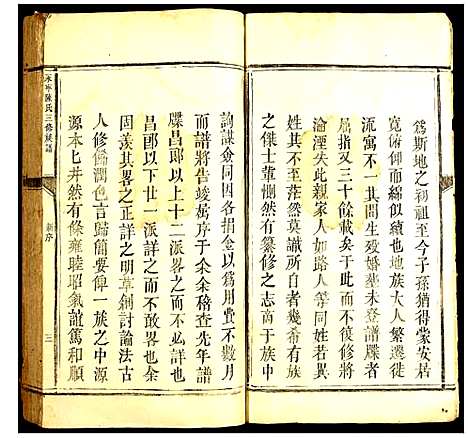 爲斯地之初祖至今子孫猶得蒙安居
寛俯仰而綿似續也地族大人繁遷徙
流寓不一其間生殁婚塟未登譜牒者
屈指又三十餘載矣于此而不修將恐
淪湮失此親家人如路人等同姓若何
姓其不至茫然莫識所自者幾希有族
之傑士董惻然有纂修之志商于族中
詢謀僉同因各捐金以爲用費不數月
而譜將告竣嵩序于余余稽查先年譜
牒昌郎以上十二派畧之而不序也余
昌郎以下廿一派詳之而不敢畧也余
因羨其畧之正詳之明草創討論法古
人修飾潤色言歸簡要俾一族之中源
源本七井然有條雍睦昭氣誼篤和順
永寧陳氏三修族譜
新序
三